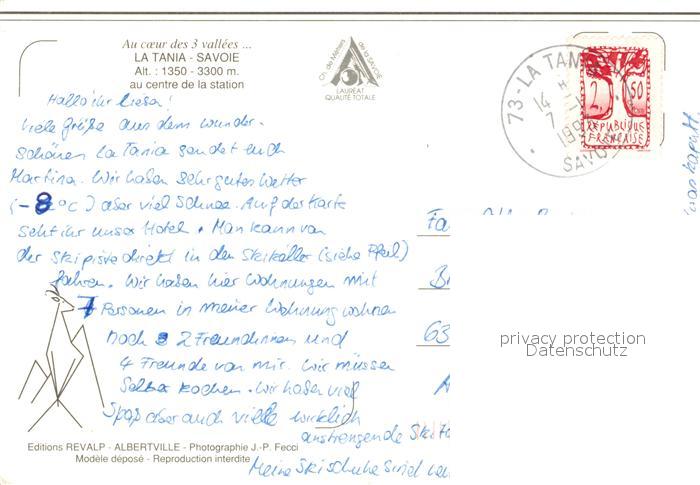 Au cœur des 3 vallées ...
LA TANIA - SAVOIE
Alt. : 1350 - 3300 m.
au centre de la station
Ch. de Métiers de la SAVOIE
LAUREAT
QUALITÉ TOTALE
73 - LA TANIA
14 H
7
SAVOIE
2,50
REPUBLIQUE
FRANÇAISE
Hallo ihr Lieben!
Viele Grüße aus dem wunder-
schönen La Tania sendet euch
Martina. Wir haben sehr gutes Wetter
(-8°C) aber viel Schnee. Auf der Karte
seht ihr unser Hotel. Man kann von
der Skipiste direkt in den Skikeller (siehe Pfeil)
fahren. Wir haben hier Wohnungen mit
7 Personen in meiner Wohnung wohnen
noch 2 Freundinnen und
4 Freunde von mir. Wir müssen
Selber kochen. Wir haben viel
Spaß aber auch viele wirklich
anstrengende Skita
Meine Skischuhe sind
war kaputt
Fa
B
63
A
privacy protection
Datenschutz
Editions REVALP - ALBERTVILLE - Photographie J.-P. Fecci
Modèle déposé - Reproduction interdite